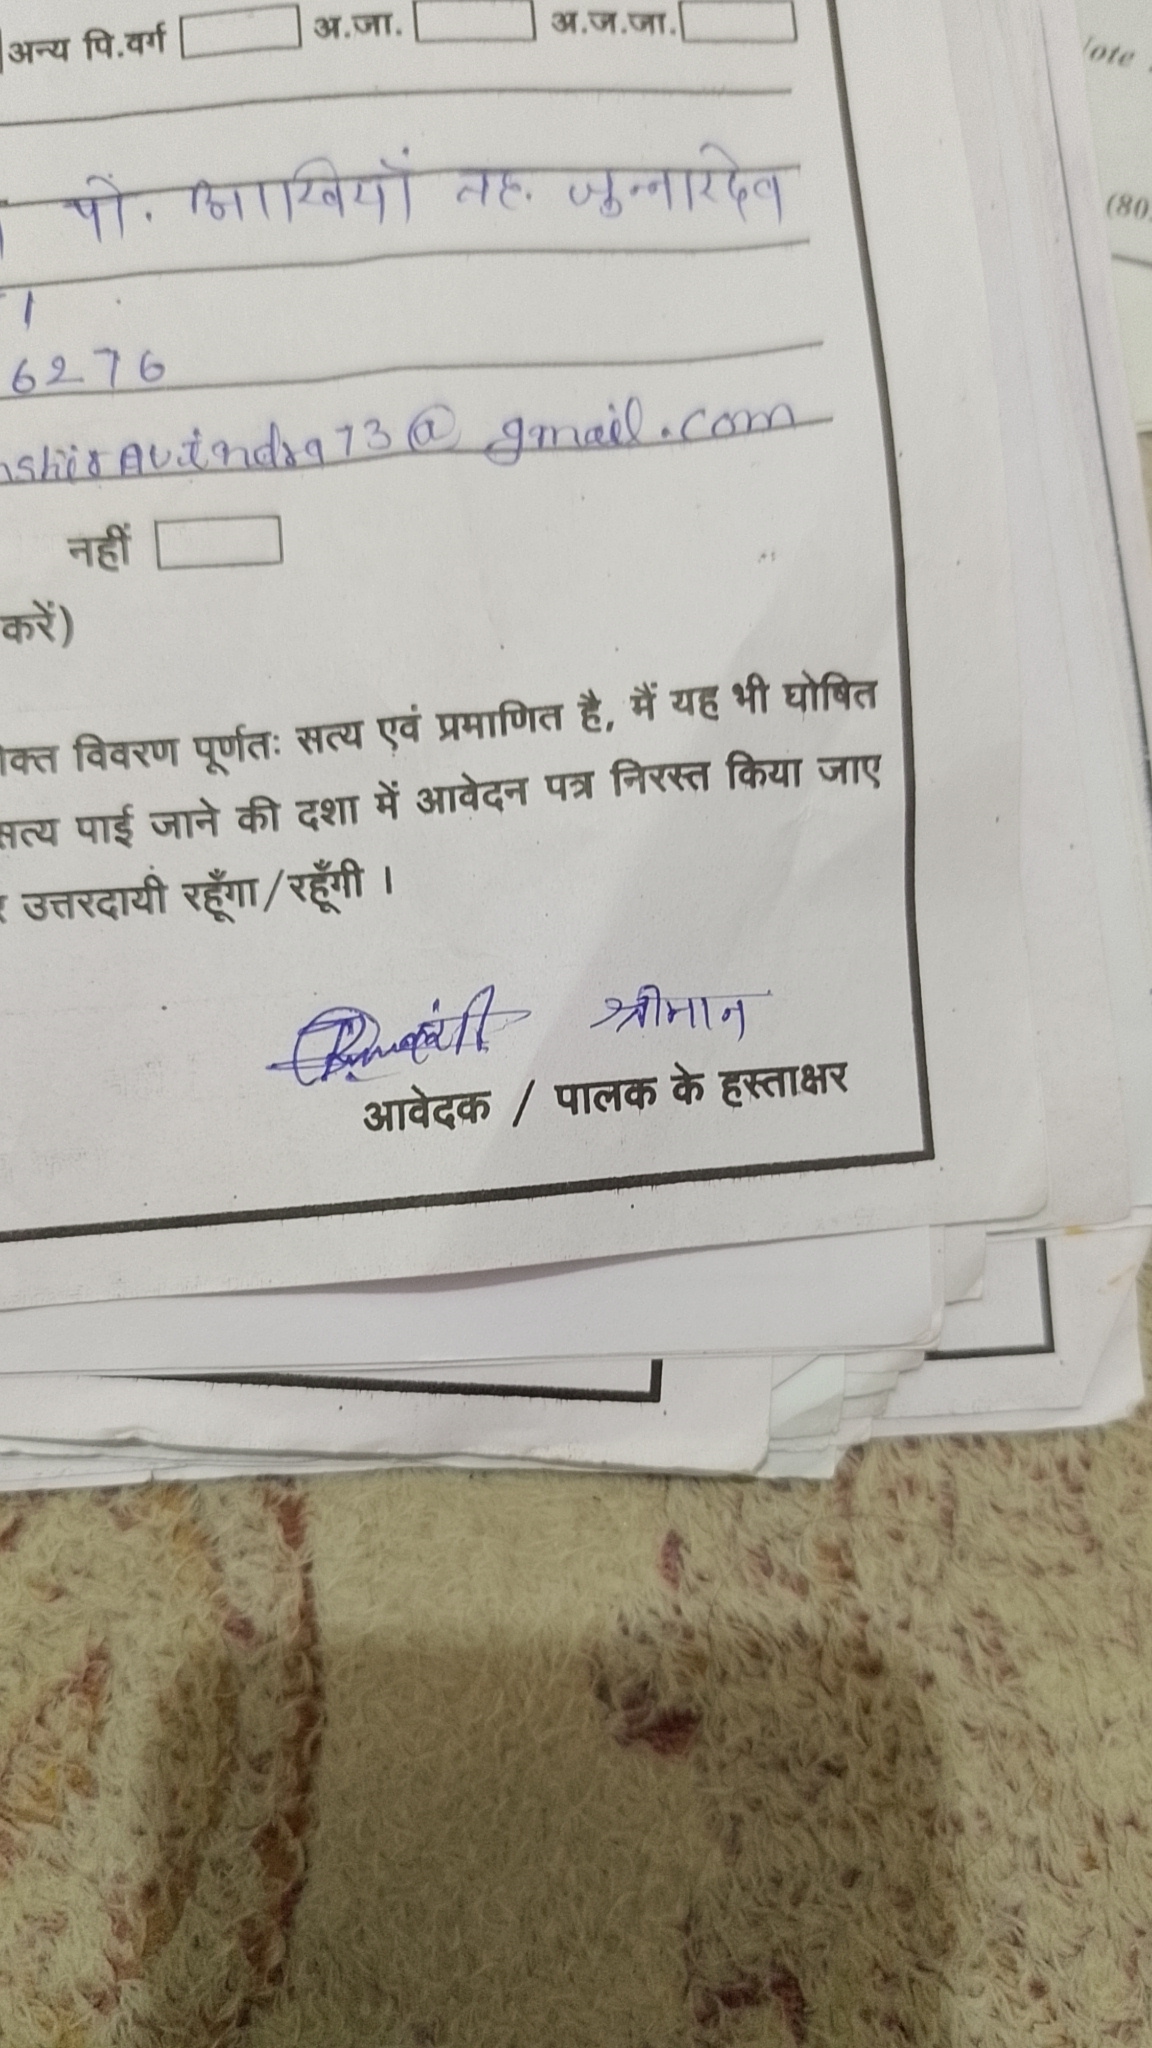 अन्य पि.वर्ग अ.जा. अ.ज.जा.
पों. आखियाँ तह. जुन्नारदेव
6276
nshiravindra73@gmail.com
नहीं
करें)
क्त विवरण पूर्णतः सत्य एवं प्रमाणित है, मैं यह भी घोषित
सत्य पाई जाने की दशा में आवेदन पत्र निरस्त किया जाए
उत्तरदायी रहूँगा/रहूँगी ।
श्रीमान
आवेदक / पालक के हस्ताक्षर
ote
(80